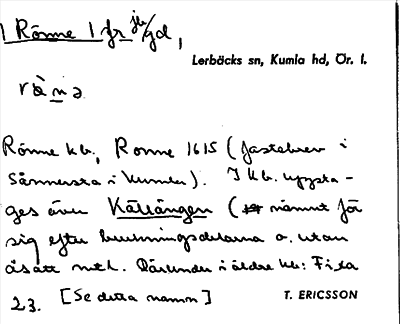 Rönne 1 fr jb/gd,
Lerbäcks sn, Kumla hd, Ör. l.
rö̀nə
Rönne kb, Ronne 1615 (Jordebrev i
Sånnersta i Kumla). I kb. uppta-
ges även Källängen ( nämnt för
sig efter brukningsdelarna o. utan
åsatt mtl. Därunder i äldre kb: Fixa
23. [Se detta namn] T. ERICSSON